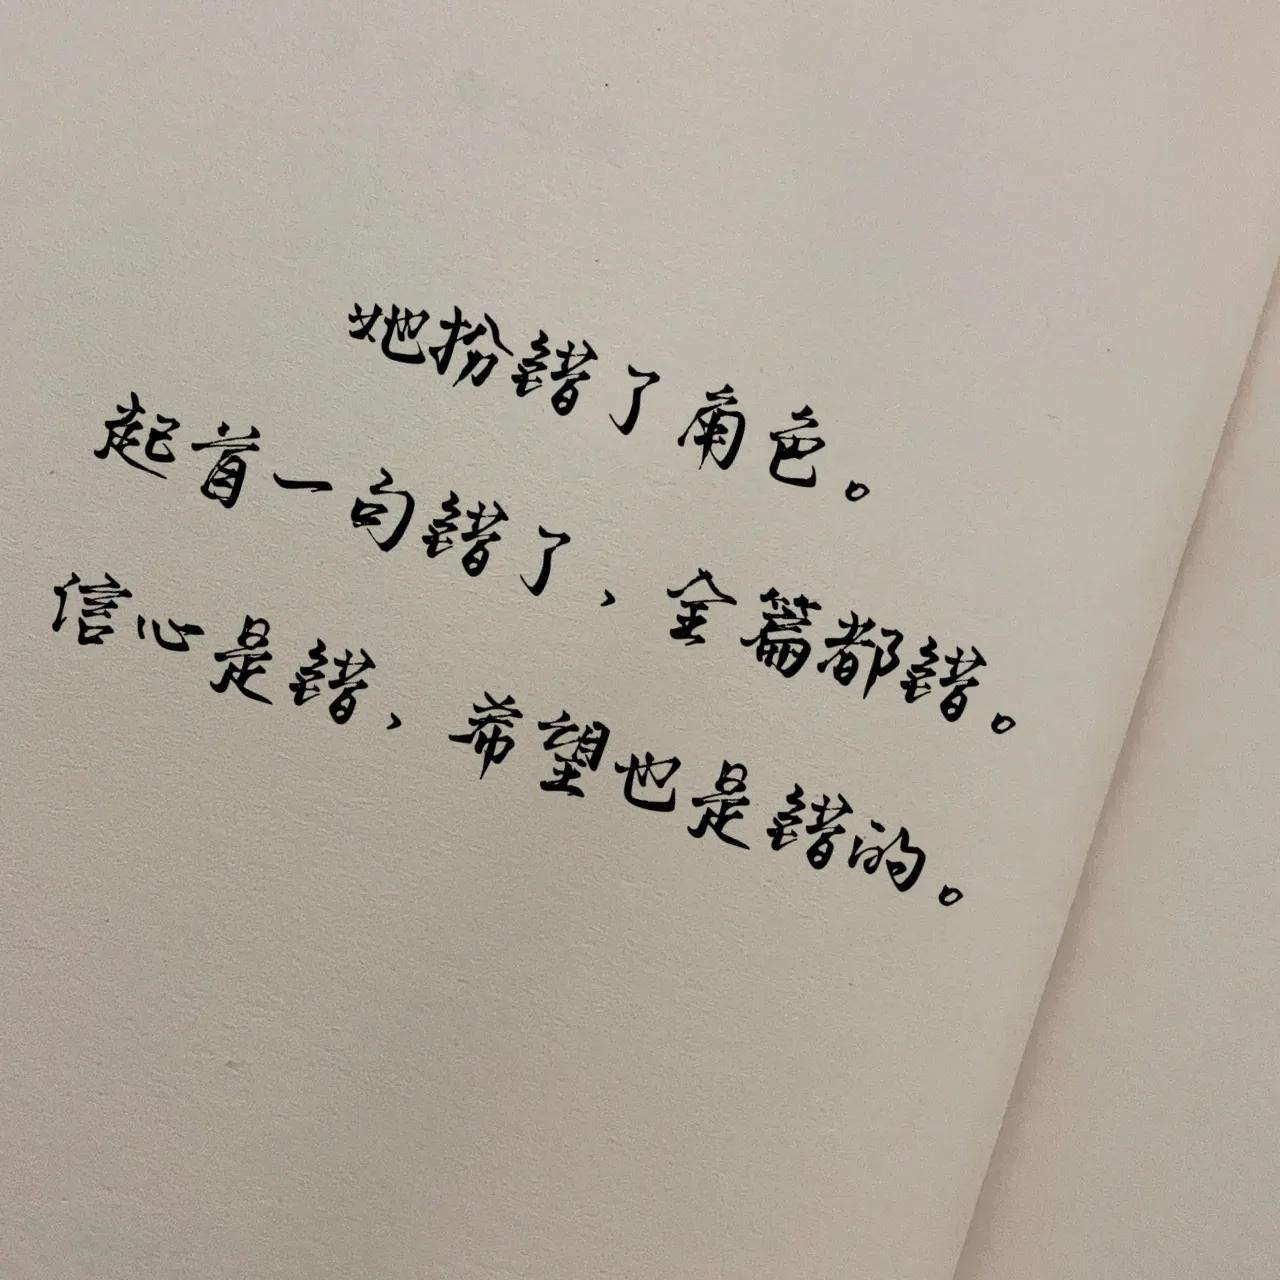 她扮错了角色。
起首一句错了，全篇都错。
信心是错，希望也是错的。